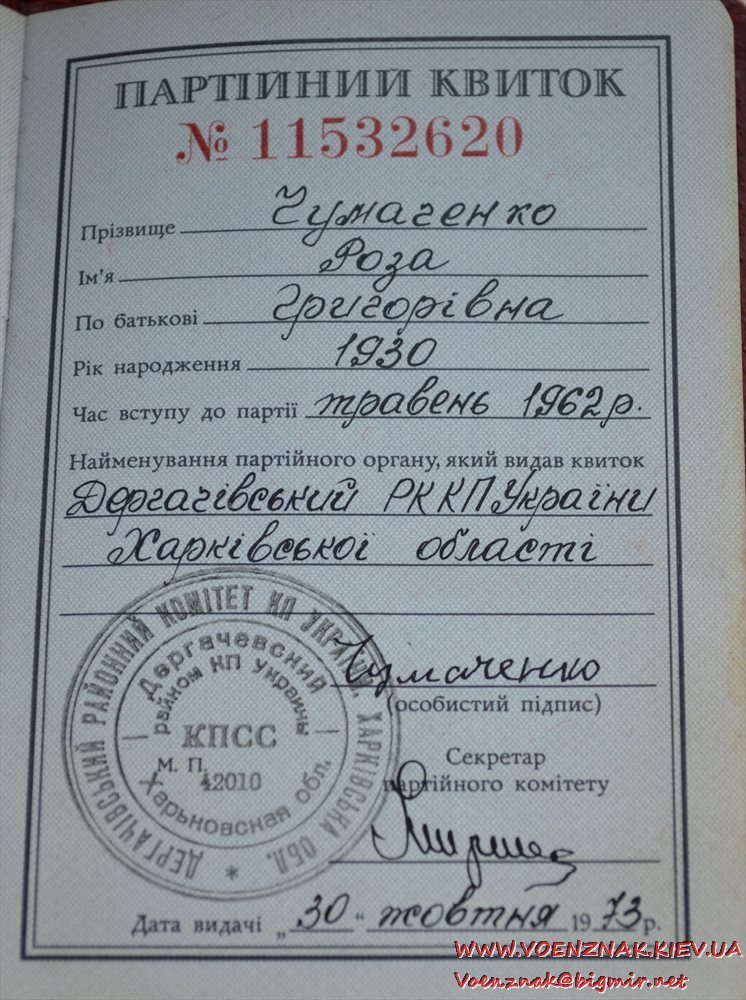 ПАРТІЙНИЙ КВИТОК
№ 11532620
Прізвище Чумаченко
Ім'я Роза
По батькові Григорівна
Рік народження 1930
Час вступу до партії травень 1962 р.
Найменування партійного органу, який видав квиток
Дергачівський РК КП України
Харківської області
ДЕРГАЧІВСЬКИЙ РАЙОННИЙ КОМІТЕТ КП УКРАЇНИ, ХАРКІВСЬКА ОБЛ. *
Дергачевский
райком КП Украины
КПСС
42010
Харьковская обл.
М. П.
Чумаченко
(особистий підпис)
Секретар
партійного комітету
Дата видачі „30“ жовтня 1973 р.
WWW.VOENZNAK.KIEV.UA
Voenznak@bigmir.net